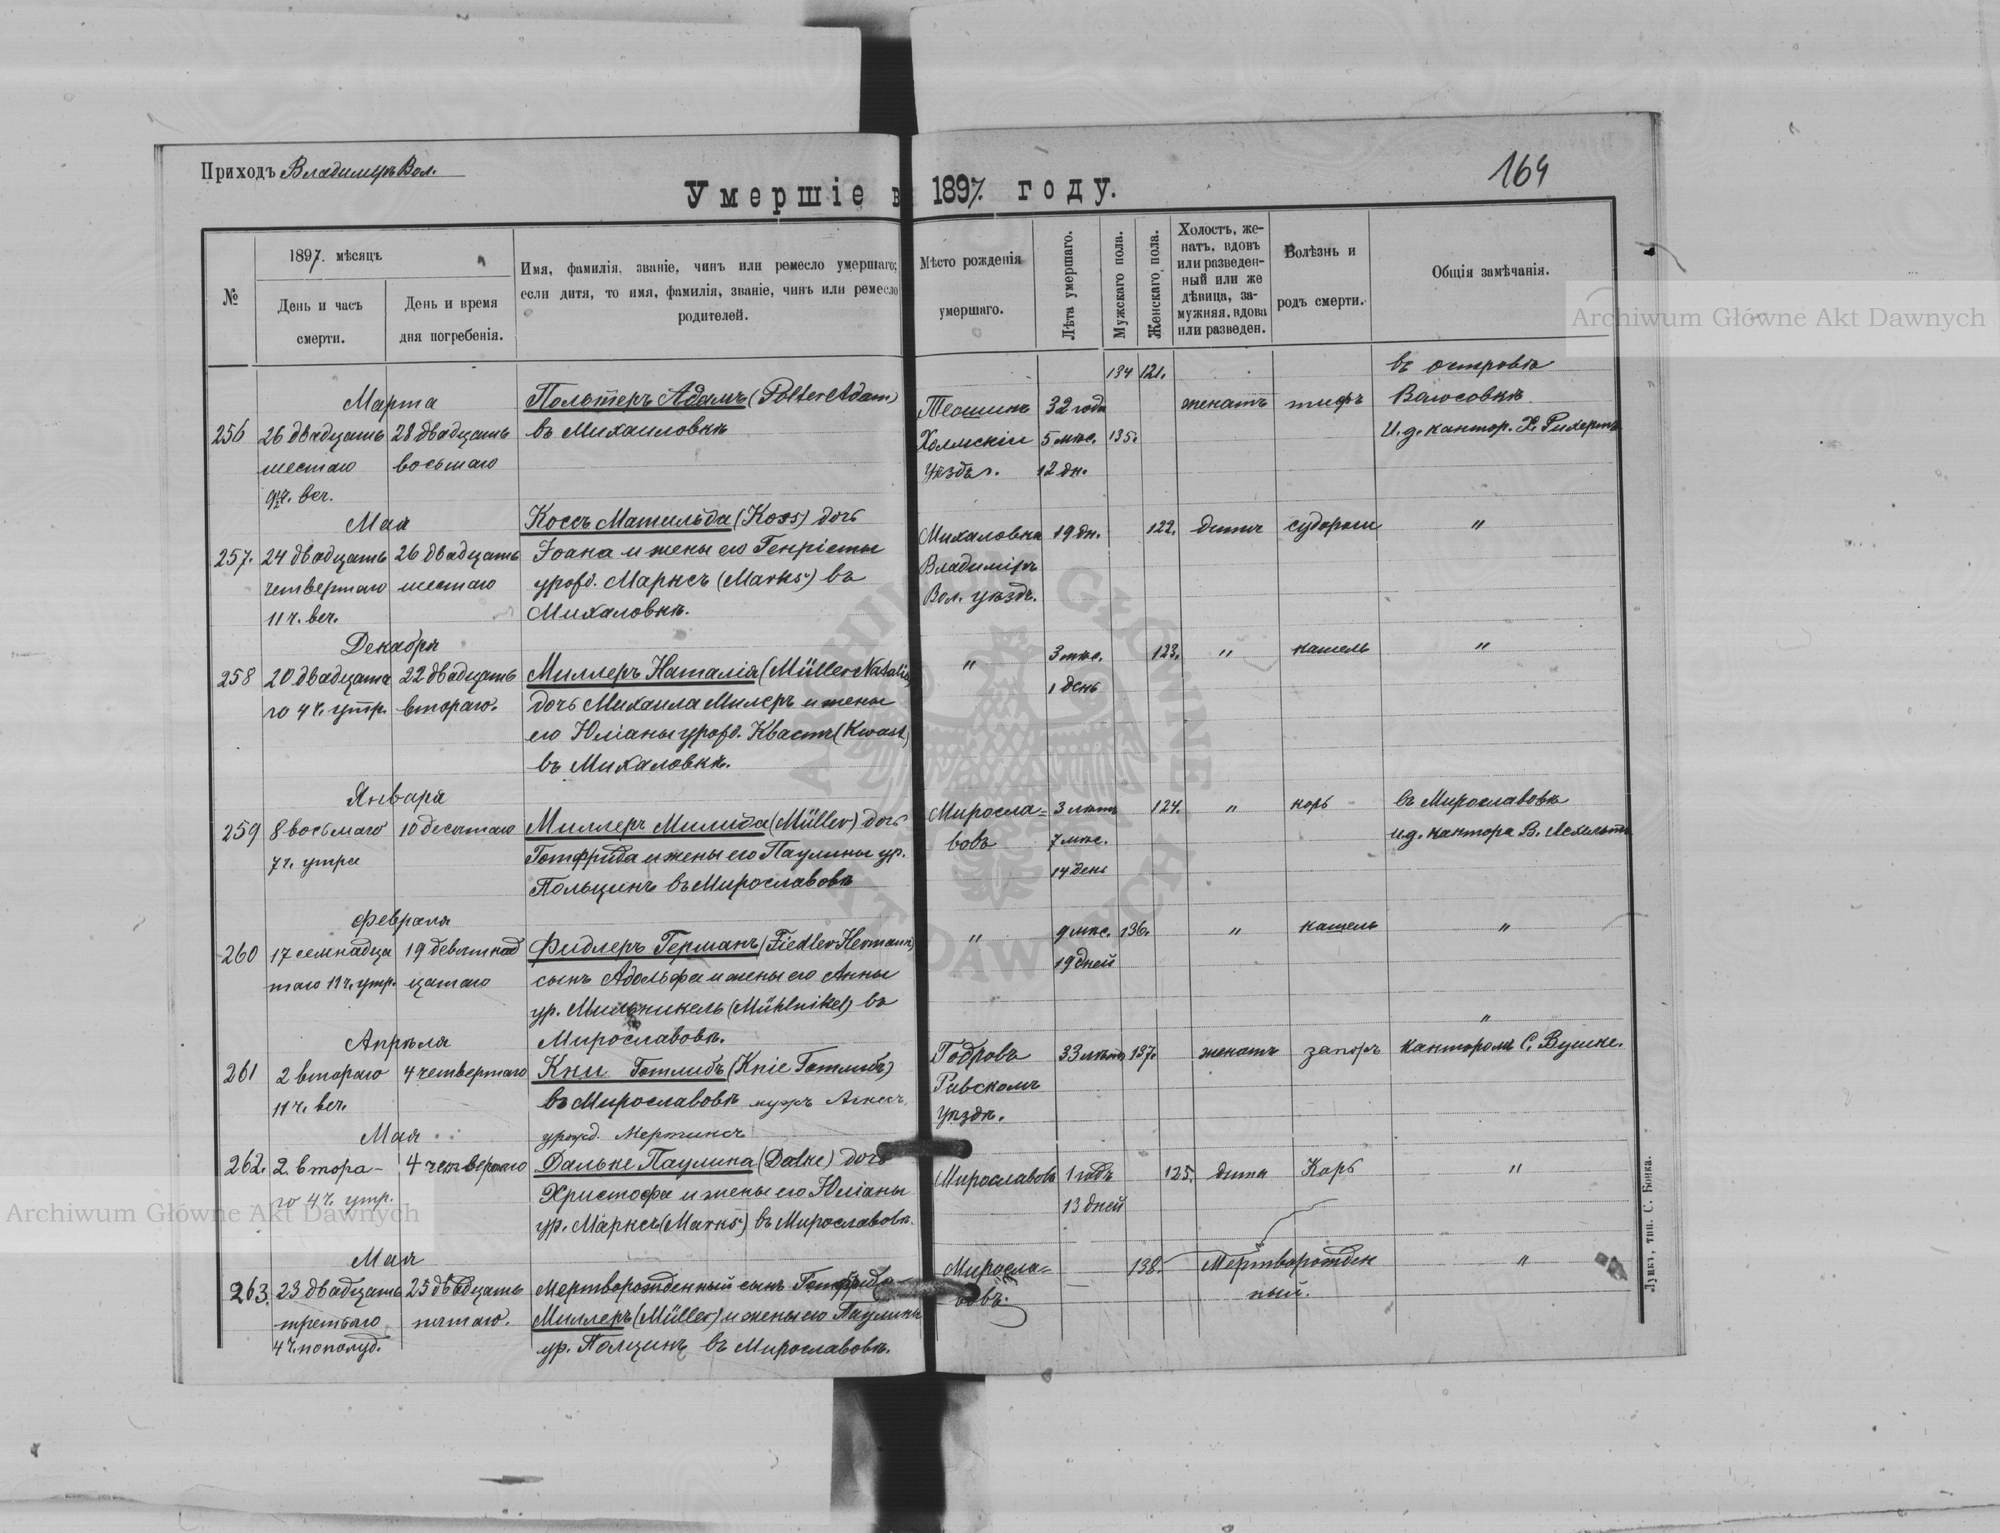 Приходъ Владимиръ Вол.
164
Умершіе в 1897. году.
№
1897. мѣсяцъ
День и часъ
смерти.
День и время
дня погребенія.
Имя, фамилія, званіе, чинъ или ремесло умершаго;
если дитя, то имя, фамилія, званіе, чинъ или ремесло
родителей.
Мѣсто рожденія
умершаго.
Лѣта умершаго.
Мужскаго пола.
Женскаго пола.
Холостъ, же-
натъ, вдовъ
или разведен-
ный или же
дѣвица, за-
мужняя, вдова
или разведен.
Болѣзнь и
родъ смерти.
Общія замѣчанія.
134 121.
въ островѣ
Марта
Польтеръ Адамъ (Polter Adam)
32 года женатъ тифъ
256 26 двадцать 28 двадцать въ Михаиловкѣ
Холмскій 5 мѣс. 135. И. д. кантор. Х. Рихертъ
шестаго восьмаго
Уѣздѣ. 12 дн.
ч. веч.
Мая
Коссъ Матильда (Koss) дочь
Михаловка 19 дн. 122. дитя судороги "
257. 24 двадцать 26 двадцать Іоана и жены его Генріеты
Владиміръ
четвертаго шестаго урожд. Марксъ (Marks) въ
Вол. уѣздъ.
11 ч. веч. Михаловкѣ.
Декабря
" 3 мѣс. 123. " кашель "
258 20 двадцата 22 двадцать Миллеръ Наталія (Müller Natalie)
1 день
го 4 ч. утр. втораго. дочь Михаила Милеръ и жены
его Юліаны урожд. Квастъ (Kwast)
въ Михаловкѣ.
Января
Миросла= 3 лѣтъ 124. " корь въ Мирославовкѣ
259 8 восьмаго 10 десятаго Миллеръ Милида (Müller) дочь
вовъ 7 мѣс. и. д. кантора В.
7 ч. утра Готфрида и жены его Паулины ур.
14 день
Польцинъ въ Мирославовѣ
Февраля
" 9 мѣс. 136. " кашель "
260 17 семнадца 19 девятнад Фидлеръ Германъ (Fiedler Hermann)
19 дней
таго 11 ч. утр. цатаго сынъ Адольфа и жены его Анны
ур. Мильникель (Mühlnikel) въ
"
Апрѣля Мирославовѣ.
33 лѣтъ 137. женатъ запоръ канторомъ С. Вушке.
261 2 втораго 4 четвертаго Кни Готлибъ (Knie Готлибъ)
11 ч. веч. въ Мирославовѣ мужъ
Уѣздѣ.
Мая урожд. Мертинсъ
262. 2 втора- 4 четвертаго Дальке Паулина (Dalke) дочь
Мирославовъ 1 годъ 125. дитя Корь "
го 4 ч. утр. Христофа и жены его Юліаны
13 дней
ур. Марксъ (Marks) въ Мирославовѣ.
Мая
Миросла= 138. Мертворожден "
263. 23 двадцать 25 двадцать Мертворожденный сынъ Готфрида
вовъ. ный.
третьяго пятаго. Миллеръ (Müller) и жены его Паулины
4 ч. пополуд. ур. Полцинъ въ Мирославовѣ.
Луцкъ, тип. С. Бонка.
Archiwum Główne Akt Dawnych
Archiwum Główne Akt Dawnych
ARCHIWUM GŁÓWNE AKT DAWNYCH